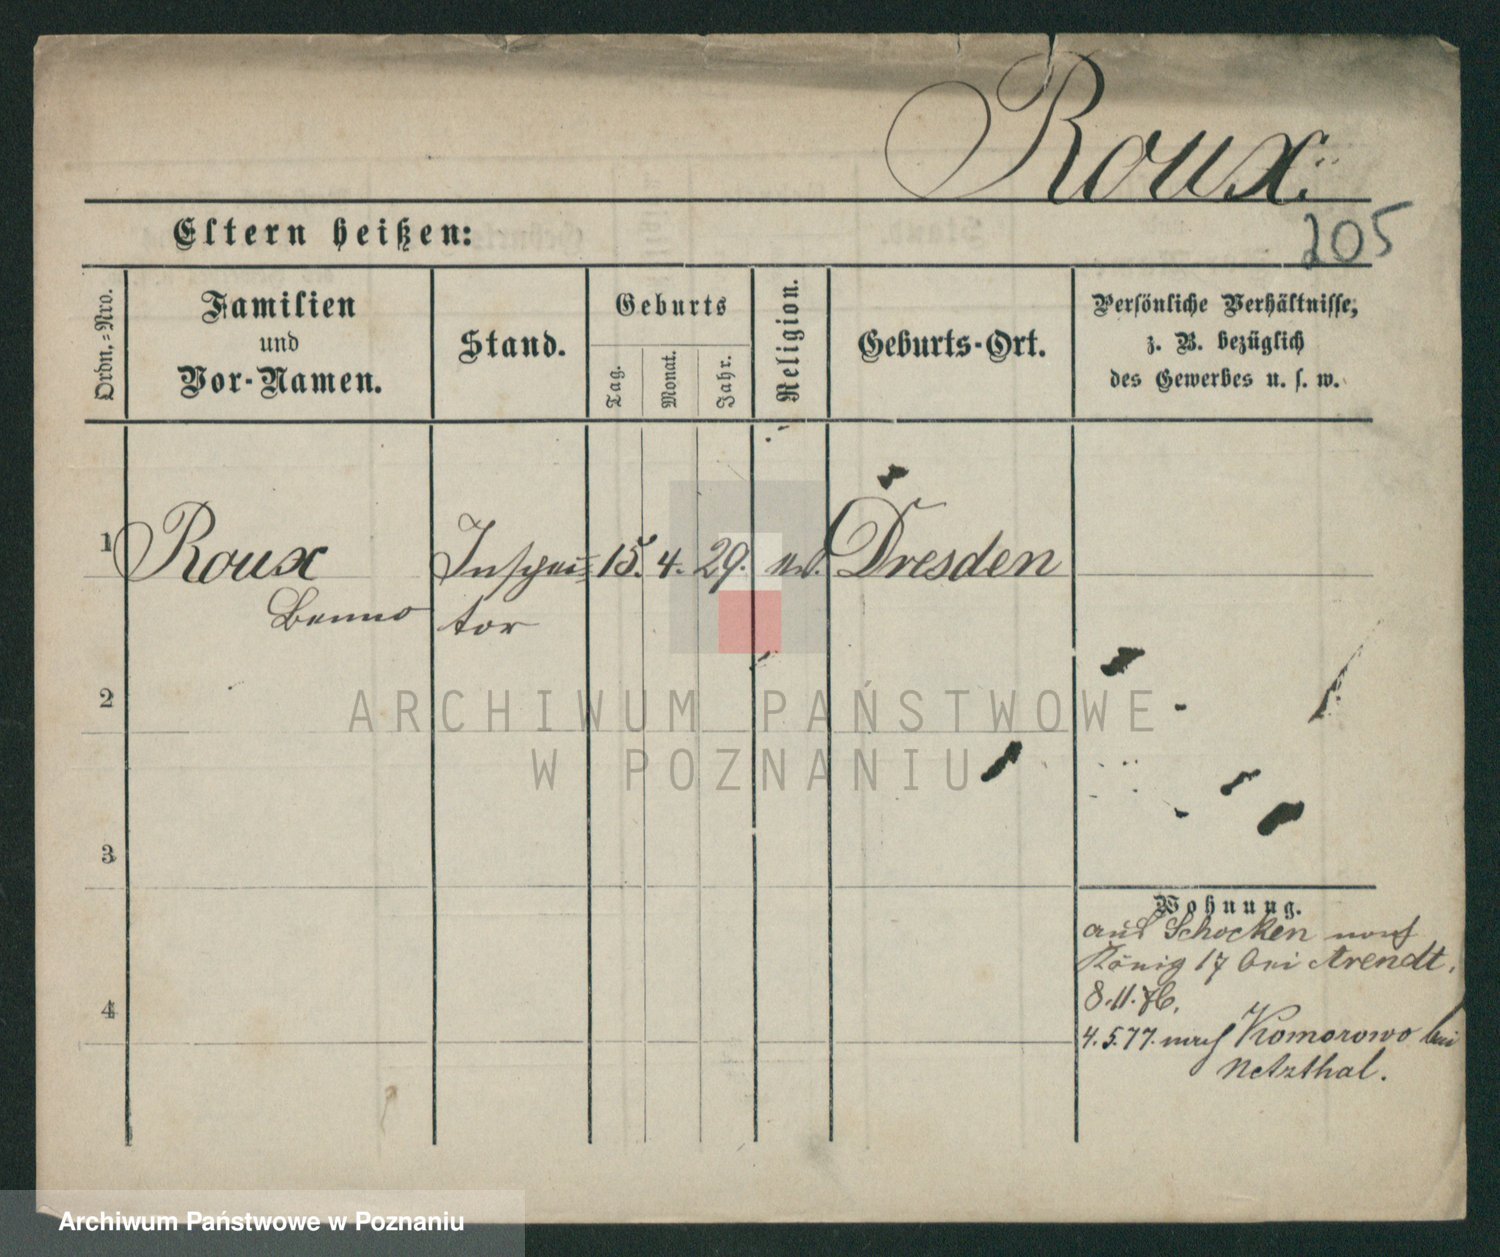 Roux.
205
Eltern heißen:
Ordn.=Nro.
Familien
und
Vor-Namen.
Stand.
Geburts
Tag.
Monat.
Jahr.
Religion.
Geburts-Ort.
Persönliche Verhältnisse,
z. B. bezüglich
des Gewerbes u. s. w.
1 Roux Inspec= 15. 4. 29. Dresden
Benno tor
2
3
4
Wohnung.
aus Schocken nach
König 17 bei Arendt.
8.11.76.
4.5.77. nach Komorowo bei
Netzthal.
ARCHIWUM PAŃSTWOWE
W POZNANIU
Archiwum Państwowe w Poznaniu